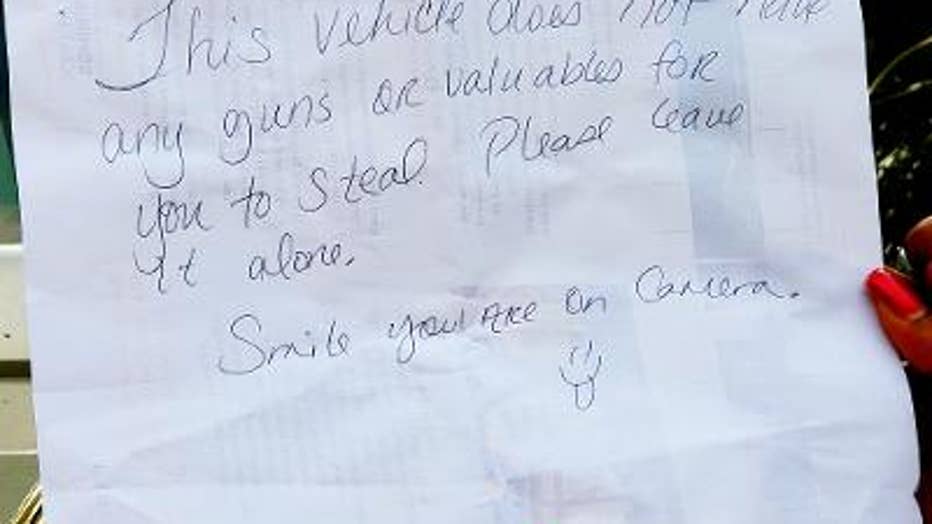 This vehicle does not have
any guns or valuables for
you to steal. Please leave
it alone.
Smile you are on Camera.